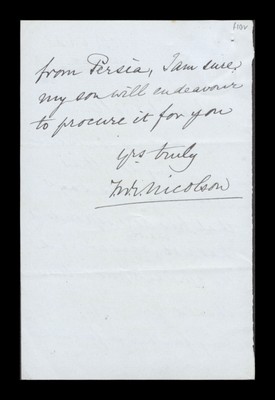 from Persia, I am sure,
my son will endeavour
to procure it for you
yrs truly
Fredk. Nicolson